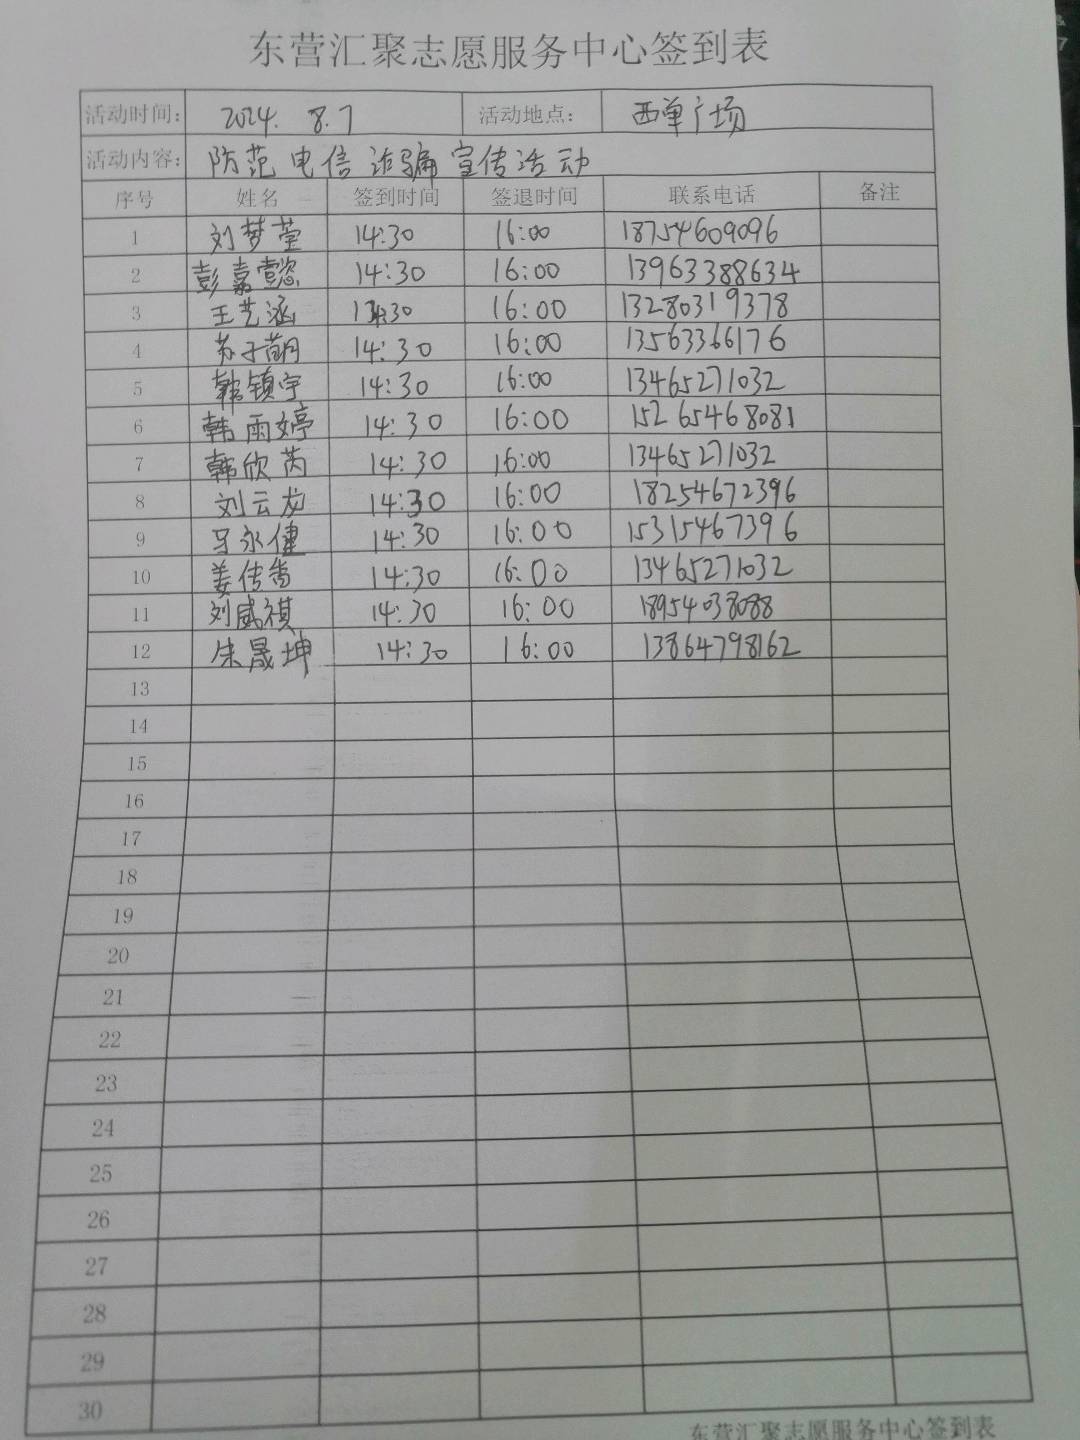 东营汇聚志愿服务中心签到表
活动时间: 2024. 8.7 活动地点: 西单广场
活动内容: 防范电信诈骗宣传活动
序号 姓名 签到时间 签退时间 联系电话 备注
1 刘梦莹 14:30 16:00 18754609096
2 彭嘉懿 14:30 16:00 13963388634
3 王艺涵 14:30 16:00 13280319378
4 苏子萌 14:30 16:00 13563366176
5 韩镇宇 14:30 16:00 13465271032
6 韩雨婷 14:30 16:00 15265468081
7 韩欣芮 14:30 16:00 13465271032
8 刘云龙 14:30 16:00 18254672396
9 马永健 14:30 16:00 15315467396
10 姜传 14:30 16:00 13465271032
11 刘威祺 14:30 16:00 18954038088
12 朱晟坤 14:30 16:00 13864798162
13
14
15
16
17
18
19
20
21
22
23
24
25
26
27
28
29
30
东营汇聚志愿服务中心签到表